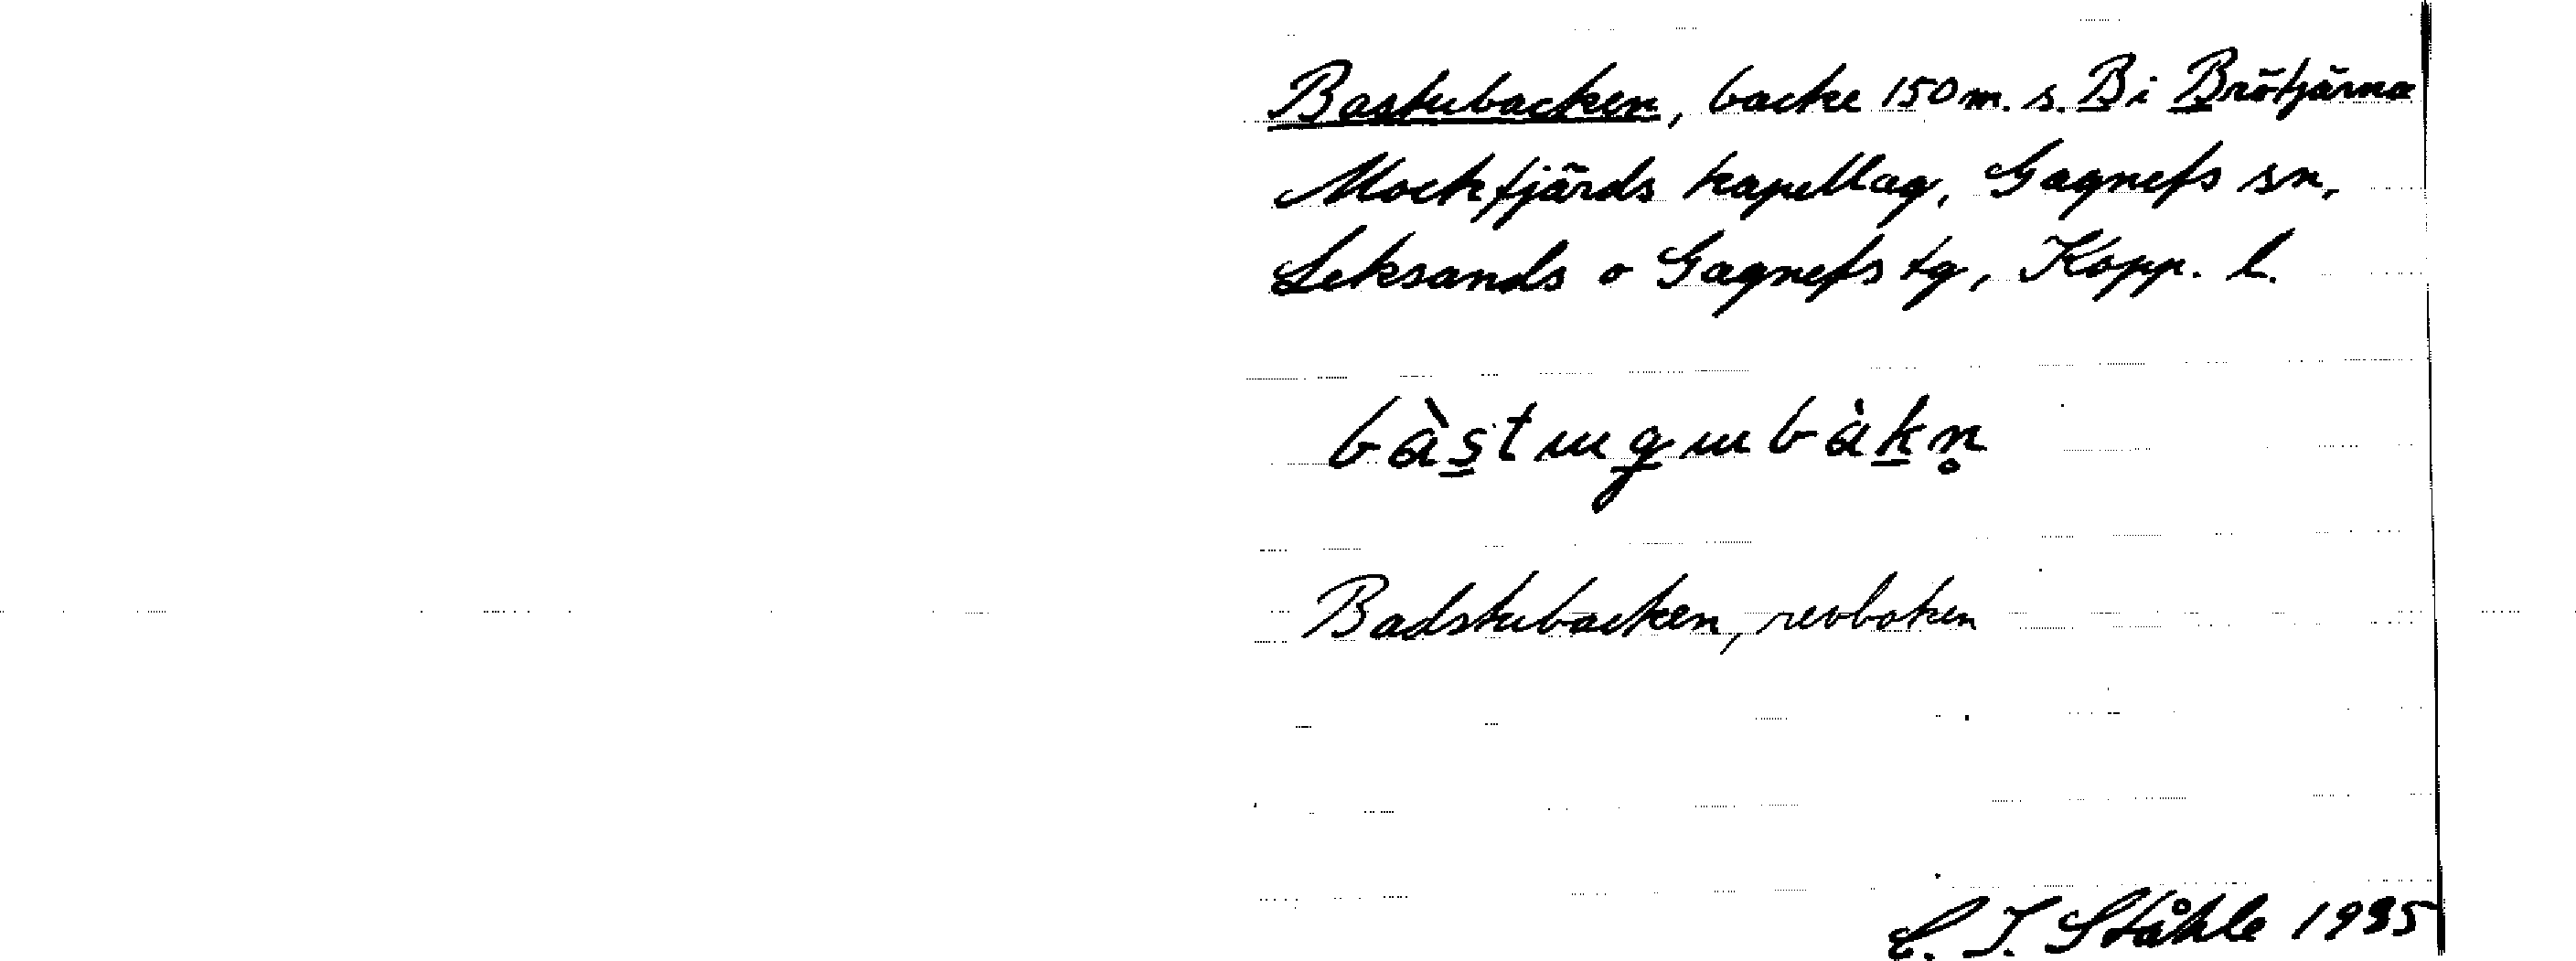 Bastubacken, backe 150 m. s. B i Brötjärna
Mockfjärds kapellag, Gagnefs sn,
Leksands o Gagnefs tg, Kopp. l.
bàs̠tɯgɯbàk̠n̥
Badstubacken, revboken
C. I. Ståhle 1935